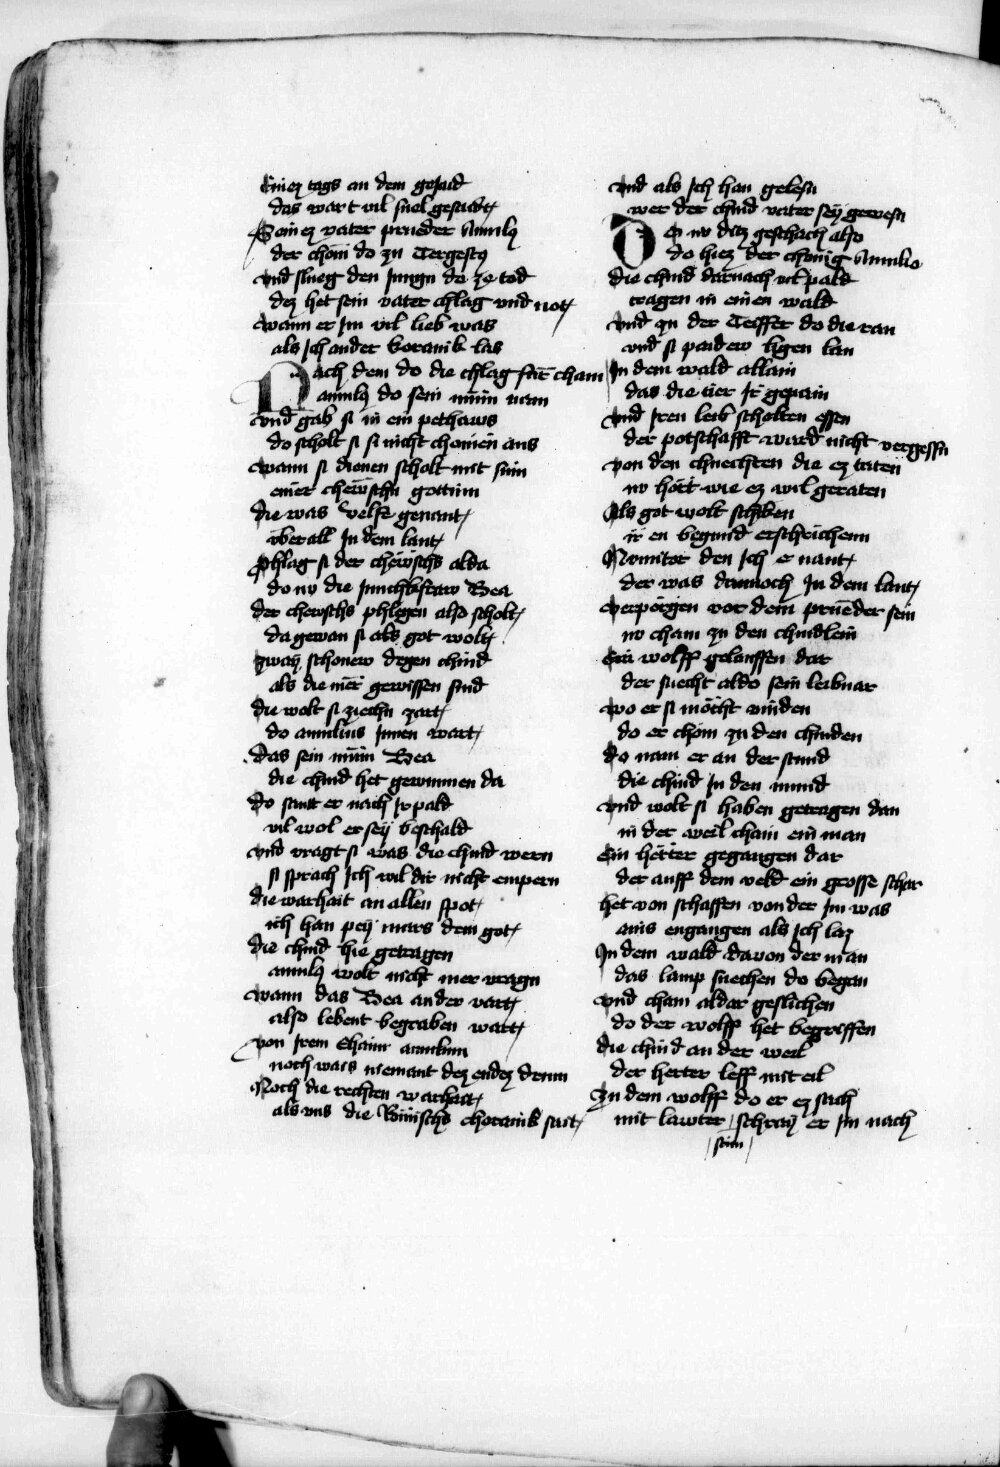 Einez tags an dem gejaid
das wart vil snel gesaidt
Sainez vater prueder Amulus
der chom do zu Tergestus
vnd slueg den Jungn do ze tod
dez het sein vater chlag vnd not
wann er Im vil lieb was
als Ich an der koranik las
Nach dem do die chlag fur cham
amulus do sein mum nam
vnd gab si in ein pethaws
do scholt si si nicht chomen aus
wann si dienen scholt mit sinn
einer chewschn gottinn
die was velse genant
vberall In dem lant
Phlag si der chewschs alda
do nv die Junchkfraw Rea
der chewschs phlegen also scholt
da gewan si als got wolt
zway schonew degen chind
als die mer gewissen sind
die wolt si ziechn zart
do amulius Innen wart
das sein mum Rea
die chind het gewunnen da
do sant er nach Ir pald
vil wol er sey beschald
vnd vragt si was die chind wern
si sprach Ich wil dir nicht empern
die warhait an allen spot
ich han pey mars dem got
die chind hie getragen
amulus wolt nicht mer vragn
wann das Rea an der vart
also lebent begraben wart
von Irem Ehaim amulum
noch wais niemant dez endez drum
Noch die rechten warhait
als vns die Romischs choranik sait
vnd als Ich han gelesn
wer der chind vater sey gewesn
Do nv ditz geschach also
do hiez der chonig Amulio
die chind darnach vil pald
tragen in einen wald
vnd zu der Teyffer do die ran
vnd si paidew ligen lan
In dem wald allain
das die tier Ir gepain
vnd Iren leib scholten essen
der potschafft ward nicht vergessn
von den chnechten die ez taten
nv hort wie ez wil geraten
Als got wolt schiken
ir en begund erschrichenn
Numitor den Ich e nant
der was dannoch In dem lant
verporgen vor dem prueder sein
nv cham zu den chindlein
Ein wolff gelauffen dar
der suecht aldo sein leibnar
wo er si mocht vinden
do er chom zu den chinden
do nam er an der stund
die chind In den mund
vnd wolt si haben getragen dan
in der weil cham ein man
Ein herter gegangen dar
der auff dem veld ein grosse schar
het von schaffen von der Im was
ains engangen als Ich laz
In dem wald davon der man
das lamp suechen do began
vnd cham aldar geslichen
do der wolff het begriffen
die chind an der weil
der herter leff mit eil
Zu dem wolff do er ez sach
mit lawter schray er Im nach
stim